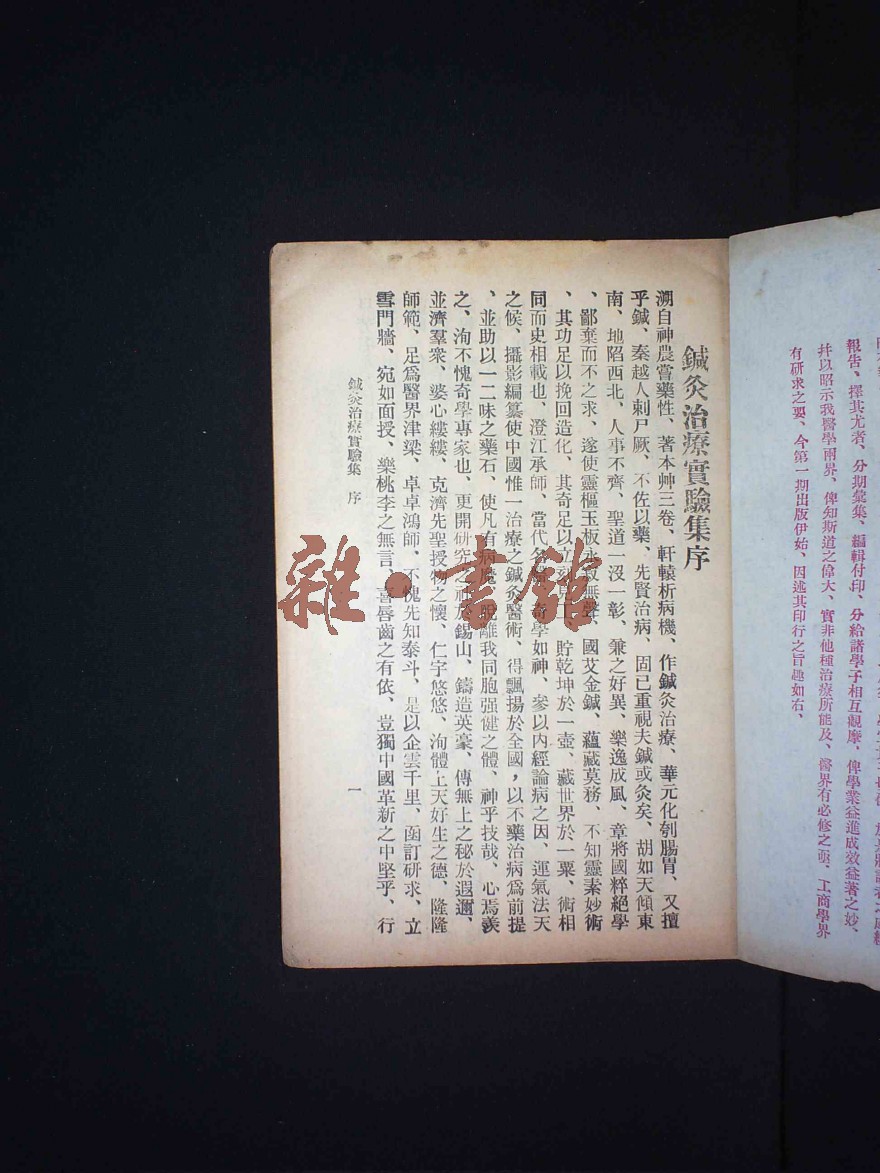 鍼灸治療實驗集序
溯自神農嘗藥性、著本艸三卷、軒轅析病機、作鍼灸治療、華元化刳腸胃、又擅
乎鍼、秦越人刺尸厥、不佐以藥、先賢治病、固已重視夫鍼或灸矣、胡如天傾東
南、地陷西北、人事不齊、聖道一沒一彰、兼之好異、樂逸成風、章將國粹絕學
、鄙棄而不之求、遂使靈樞玉板永寂無聲、國艾金鍼、蘊藏莫務、不知靈素妙術
、其功足以挽回造化、其奇足以立、貯乾坤於一壺、藏世界於一粟、術相
同而史相載也、澄江承師、當代名、奇學如神、參以內經論病之因、運氣法天
之候、攝影編纂使中國惟一治療之鍼灸醫術、得飄揚於全國，以不藥治病爲前提
、並助以一二味之藥石、使凡有病魔、脫離我同胞强健之體、神乎技哉、心焉羨
之、洵不愧奇學專家也、更開研究之社於錫山、鑄造英豪、傳無上之秘於遐邇、
並濟羣衆、婆心縷縷、克濟先聖授物之懷、仁宇悠悠、洵體上天好生之德、隆隆
師範、足爲醫界津梁、卓卓鴻師、不愧先知泰斗、是以企雲千里、函訂研求、立
雪門牆、宛如面授、樂桃李之無言、喜唇齒之有依、豈獨中國革新之中堅乎、行
鍼灸治療實驗集 序
一
報告、擇其尤者、分期彙集、編輯付印、分給諸學子相互觀摩、俾學業益進成效益著之妙、
幷以昭示我醫學兩界、俾知斯道之偉大、實非他種治療所能及、醫界有必修之、工商學界
有研求之要、今第一期出版伊始、因述其印行之旨趣如右、
雜·書館